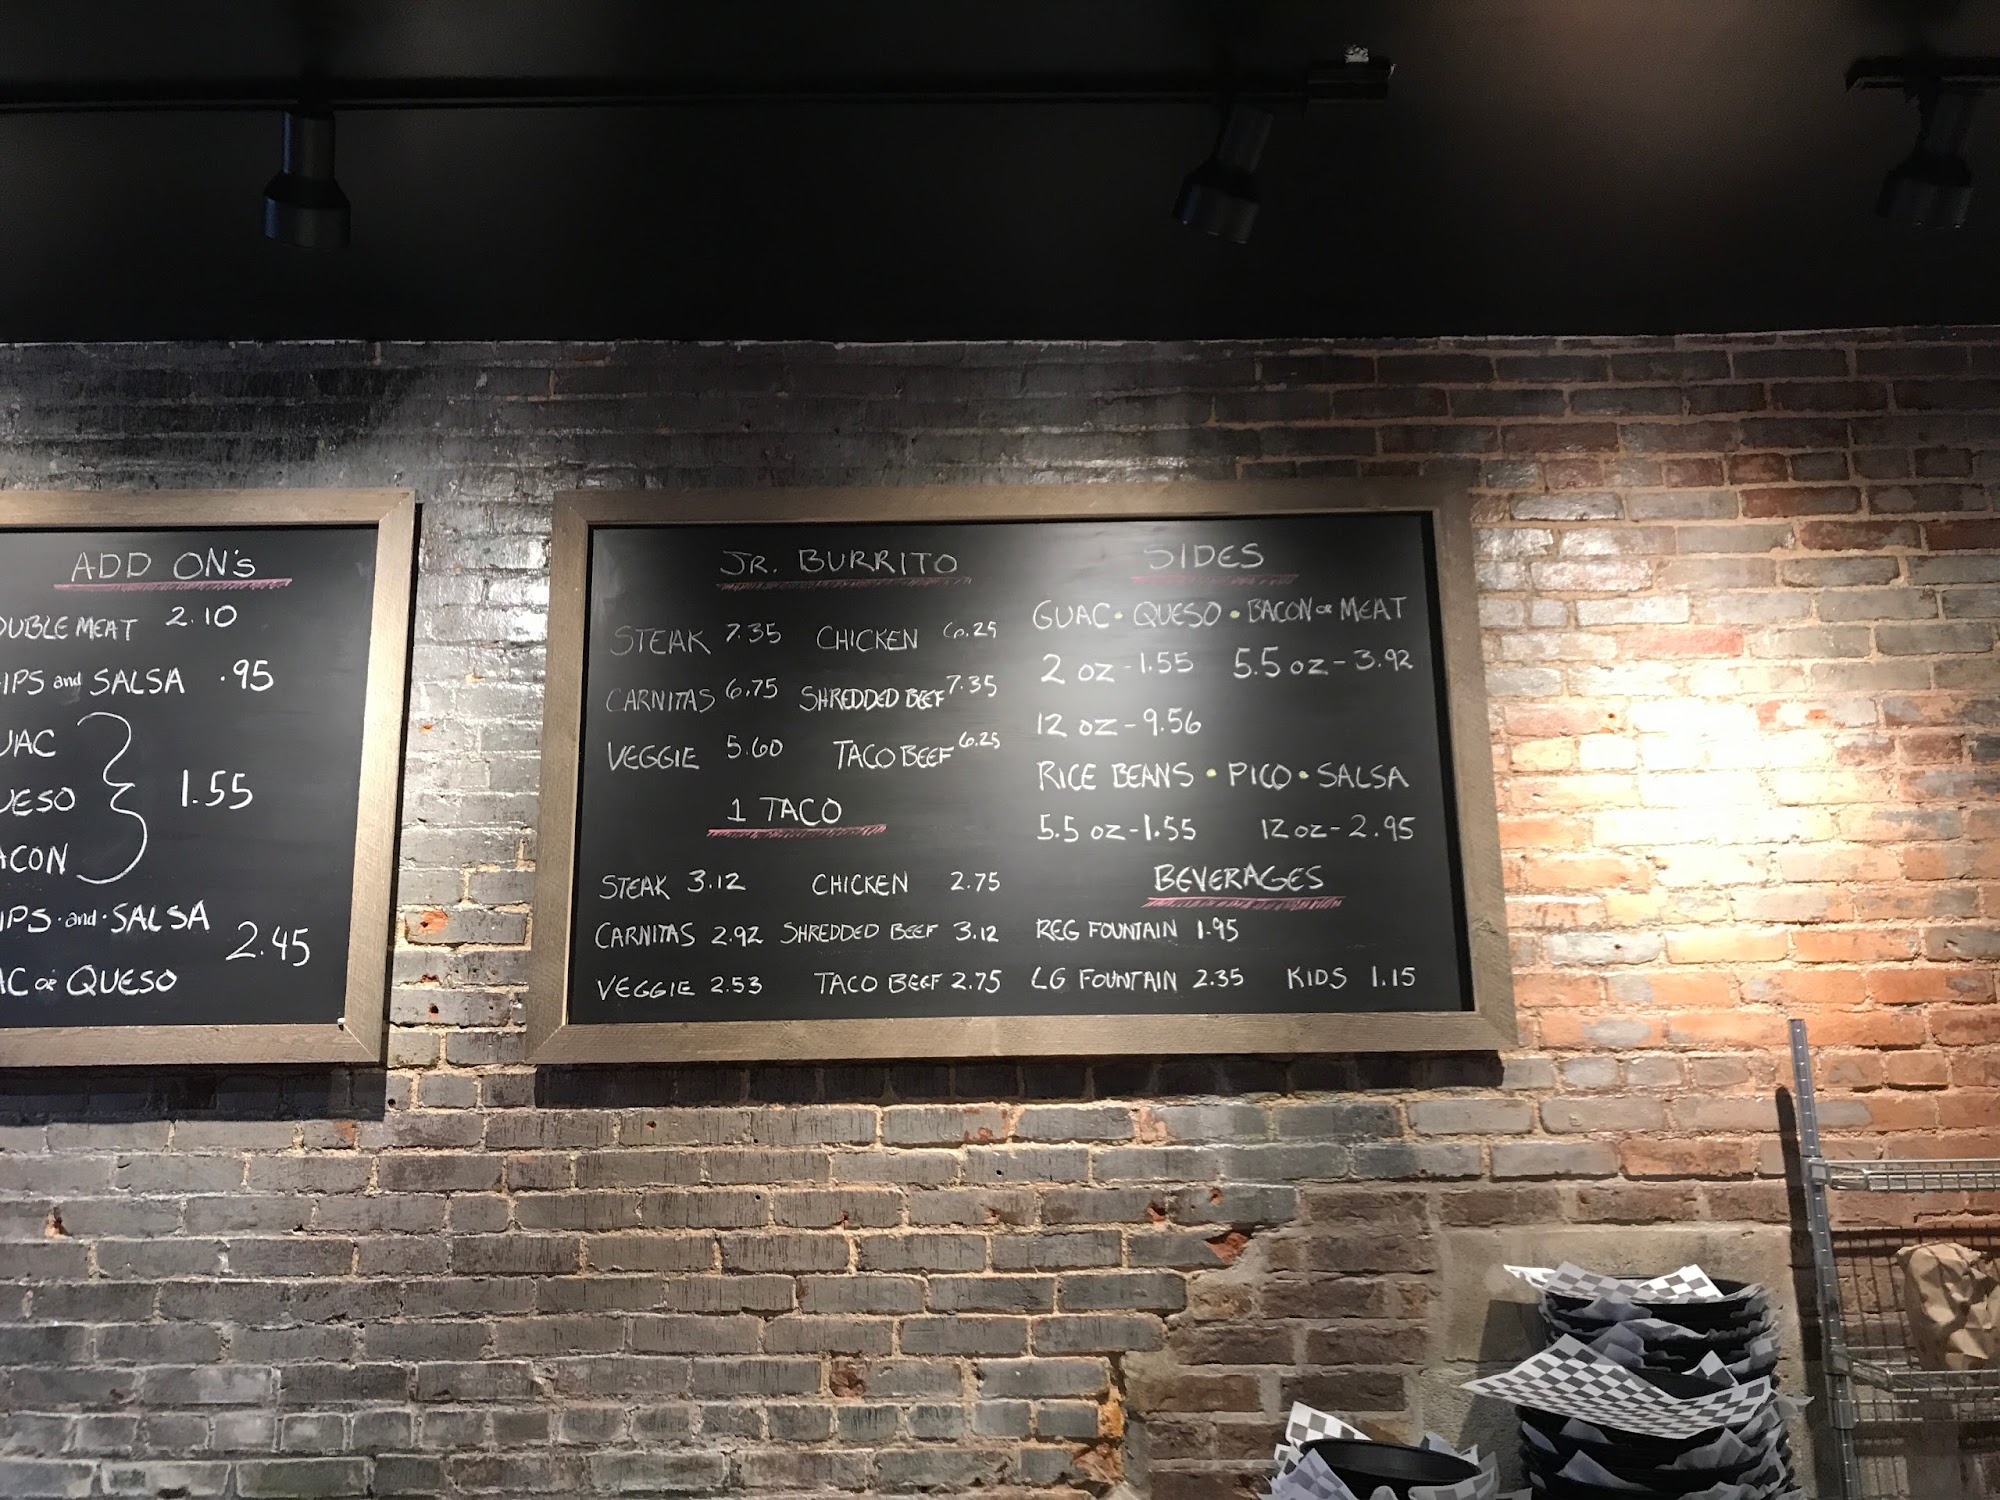 ADD ON's
OUBLE MEAT 2.10
IPS and SALSA .95
UAC
UESO 1.55
ACON
IPS·and·SALSA
2.45
AC or QUESO
JR. BURRITO
STEAK 7.35 CHICKEN 6.25
CARNITAS 6.75 SHREDDED BEEF 7.35
VEGGIE 5.60 TACO BEEF 6.25
1 TACO
STEAK 3.12 CHICKEN 2.75
CARNITAS 2.92 SHREDDED BEEF 3.12
VEGGIE 2.53 TACO BEEF 2.75
SIDES
GUAC • QUESO • BACON or MEAT
2 oz - 1.55 5.5 oz - 3.92
12 oz - 9.56
RICE BEANS • PICO • SALSA
5.5 oz - 1.55 12 oz - 2.95
BEVERAGES
REG FOUNTAIN 1.95
LG FOUNTAIN 2.35 KIDS 1.15